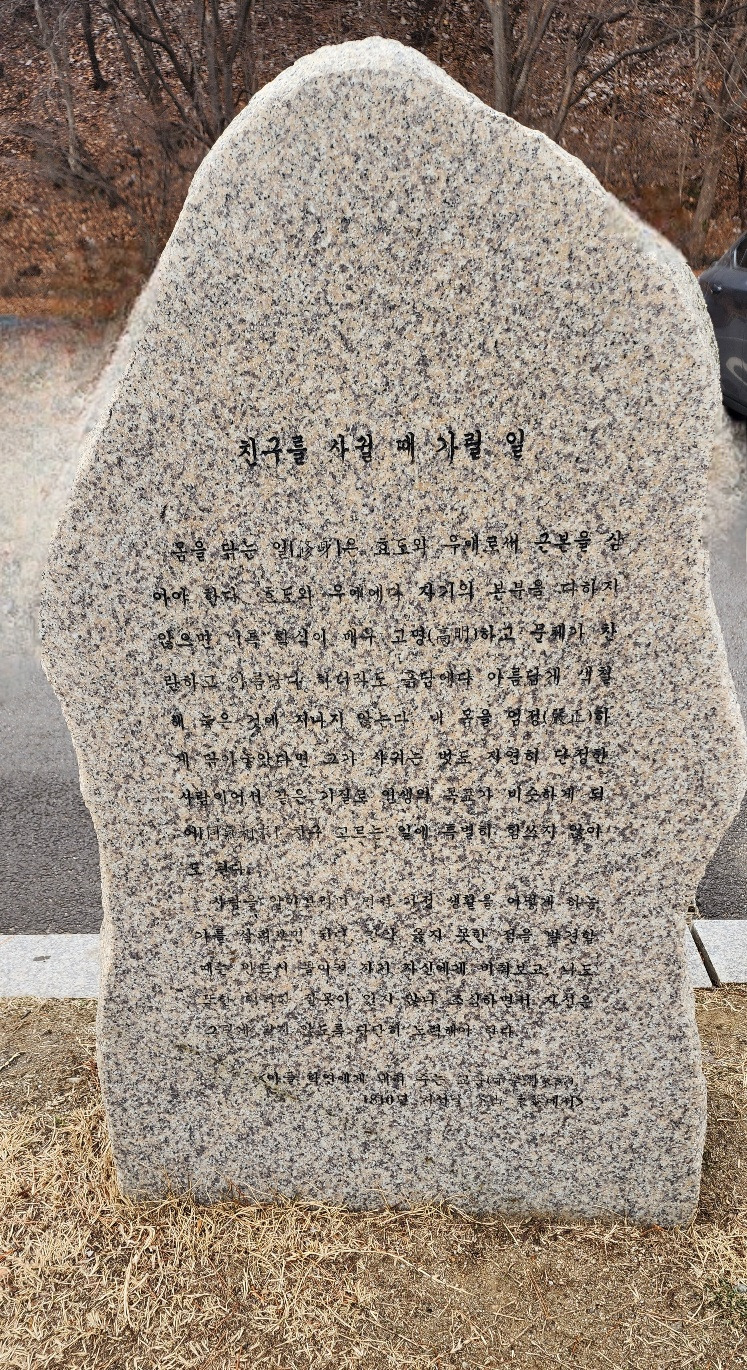 친구를 사귈 때 가릴 일
몸을 닦는 일(修身)은 효도와 우애로써 근본을 삼
아야 한다. 효도와 우애에다 자기의 본분을 다하지
않으면 비록 학식이 매우 고명(高明)하고 문체가 찬
란하고 아름답다 하더라도 흙담에다 아름답게 색칠
해 놓은 것에 지나지 않는다. 내 몸을 엄정(嚴正)하
게 닦아놓았다면 그가 사귀는 벗도 자연히 단정한
사람이어서 같은 기질로 인생의 목표가 비슷하게 되
어 친구 고르는 일에 특별히 힘쓰지 않아
도 된다.
사람을 알아보려면 먼저 가정 생활을 어떻게 하는
가를 살펴보면 된다. 만약 옳지 못한 점을 발견할
때는 반드시 돌이켜 자기 자신에게 비춰보고 나도
또한 이러한 잘못이 있지 않나 조심하면서 자신은
그렇게 되지 않도록 단단히 노력해야 한다.
<아들 학연에게 내려 주는 교훈
1810년